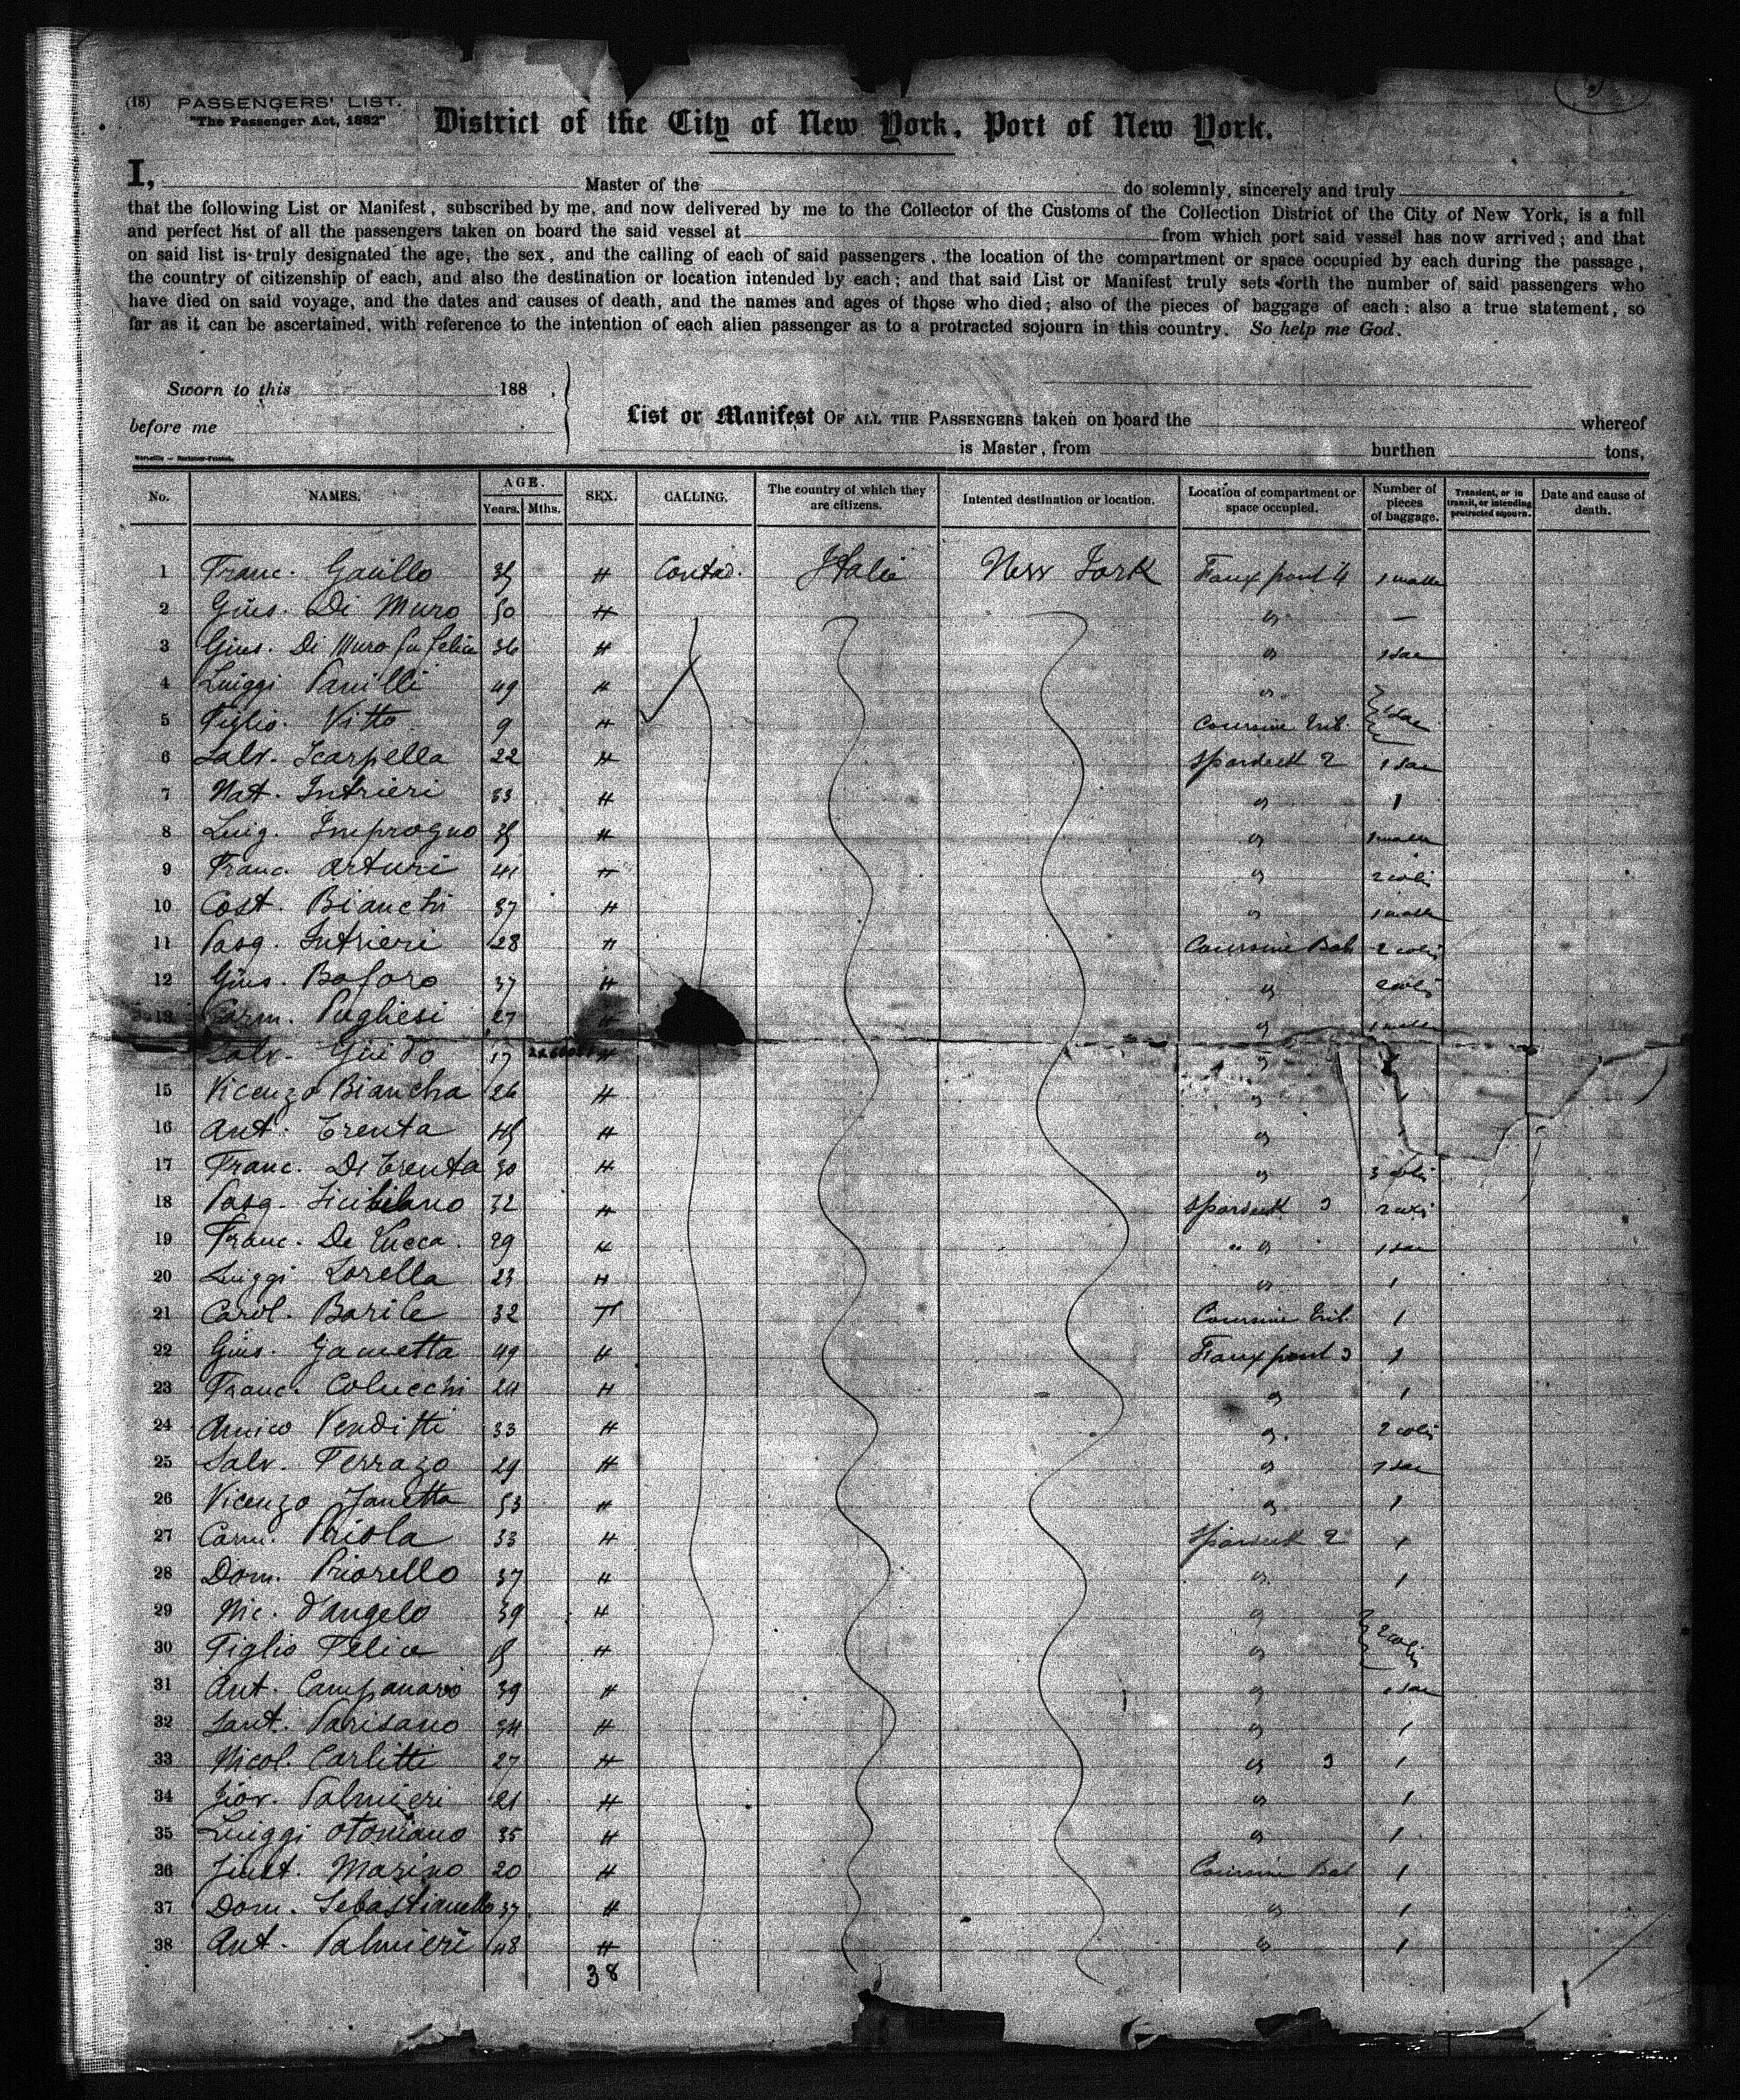 (18) PASSENGERS' LIST.
"The Passenger Act, 1882"
District of the City of New York, Port of New York.
I, Master of the do solemnly, sincerely and truly
that the following List or Manifest, subscribed by me, and now delivered by me to the Collector of the Customs of the Collection District of the City of New York, is a full
and perfect list of all the passengers taken on board the said vessel at from which port said vessel has now arrived; and that
on said list is truly designated the age, the sex, and the calling of each of said passengers, the location of the compartment or space occupied by each during the passage,
the country of citizenship of each, and also the destination or location intended by each; and that said List or Manifest truly sets forth the number of said passengers who
have died on said voyage, and the dates and causes of death, and the names and ages of those who died; also of the pieces of baggage of each: also a true statement, so
far as it can be ascertained, with reference to the intention of each alien passenger as to a protracted sojourn in this country. So help me God.
Sworn to this 188 ,
before me
List or Manifest OF ALL THE PASSENGERS taken on board the whereof
is Master, from burthen tons,
No. NAMES. AGE. Years. Mths. SEX. CALLING. The country of which they are citizens. Intented destination or location. Location of compartment or space occupied. Number of pieces of baggage. Transient, or in transit, or intending protracted sojourn. Date and cause of death.
1 Franc. 35 H Contad. Italie New York Faux pont 4 1 malle
2 Gius. Di Muro 50 H "
3 Gius. Di Muro fu Felice 36 H " 1 sac
4 Luiggi 49 H " 1 sac
5 Figlio. Vitto 9 H Coursive Trib.
6 Salv. Scarpella 22 H Spardeck 2 1 sac
7 Nat. Intrieri 33 H " 1
8 Luig. Improgno 35 H " 1 malle
9 Franc. Arturi 41 H " 2 colis
10 Cost. Bianchi 37 H " 1 malle
11 Pasq. Intrieri 28 H Coursive Bab 2 colis
12 Gius. Baforo 37 H " 2 colis
13 Carm. Pugliesi 27 H " 1 malle
Salv. Guido 17 H "
15 Vicenzo Biancha 26 H " 1
16 Ant. Trenta 45 H "
17 Franc. De Trenta 30 H " 3 colis
18 Pasq. 32 H Spardeck 3 2 colis
19 Franc. De Lucca. 29 H " " 1 sac
20 Luiggi Lorella 23 H " 1
21 Carol. Barile 32 F Coursive Trib. 1
22 Gius. Gametta 49 H Faux pont 3 1
23 Franc. Colucchi 24 H " 1
24 Amico Venditti 33 H " 2 colis
25 Salv. Ferrazo 29 H " 1 sac
26 Vicenzo Janetta 53 H " 1
27 Carm. Priola 33 H Spardeck 2 1
28 Dom. Priorello 37 H " 1
29 Nic. d'Angelo 39 H " 2 colis
30 Figlio Felice H "
31 Ant. Campanaro 39 H " 1 sac
32 Sant. Parisano 34 H " 1
33 Nicol. Carlitti 27 H " 3 1
34 Giov. Palmieri 21 H " 1
35 Luiggi Otoniano 35 H " 1
36 Giust. Marino 20 H Coursive Bab 1
37 Dom. Sebastianello 37 H " 1
38 Ant. Palmieri 48 H " 1
38